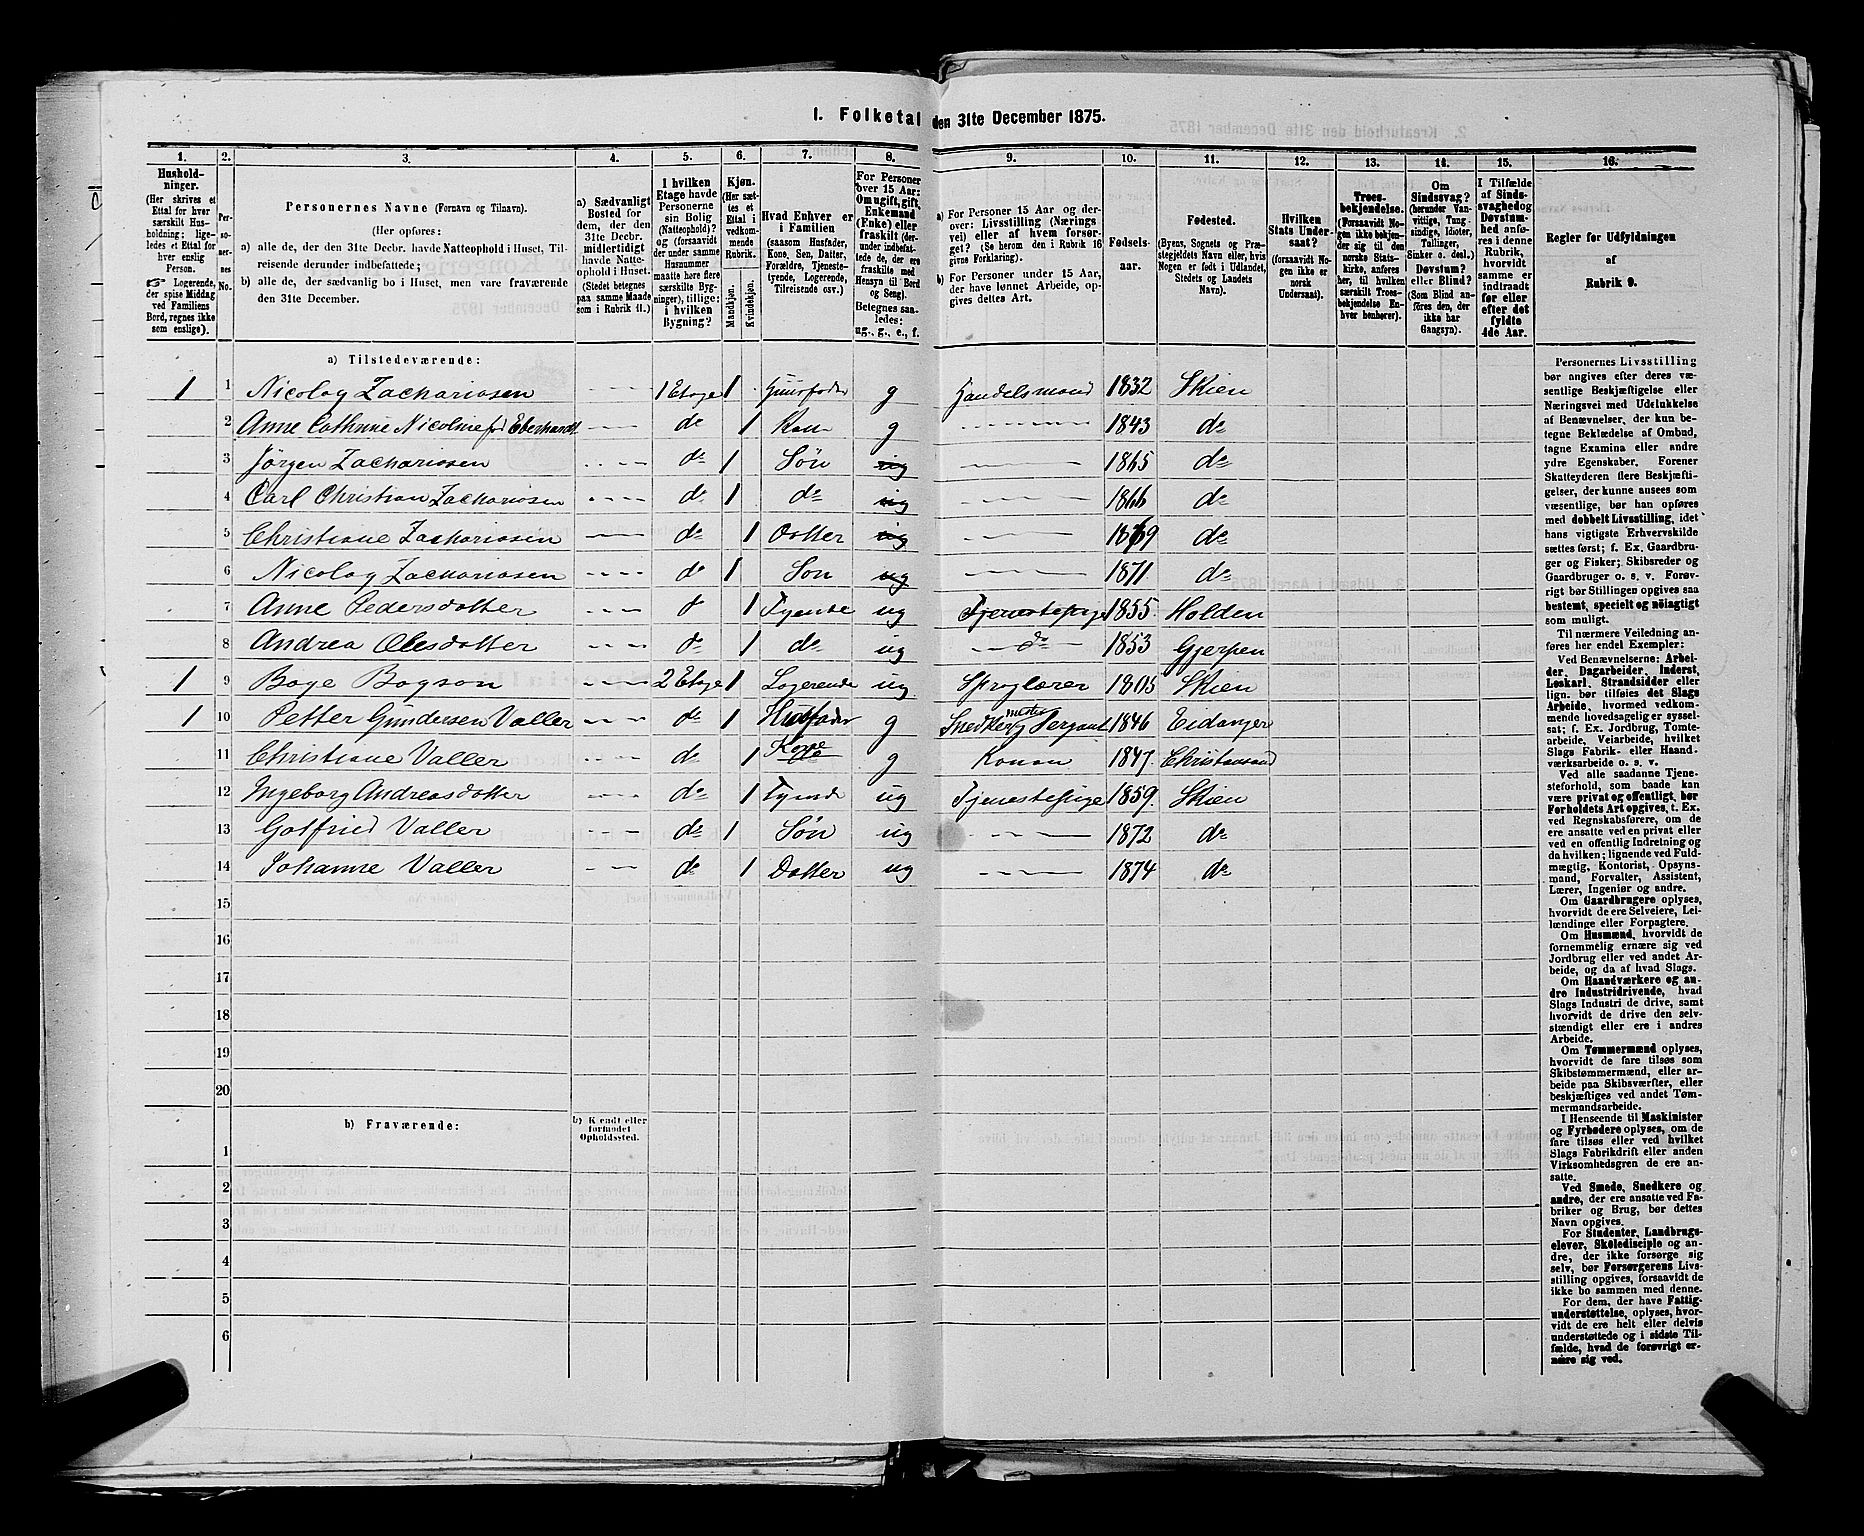 1. Folketal den 31te December 1875.
1. 2. 3. 4. 5. 6. 7. 8. 9. 10. 11. 12. 13. 14. 15. 16.
Hushold-
ninger.
(Her skrives et
Ettal for hver
særskilt Hus-
holdning; lige-
ledes et Ettal for
hver enslig
Person.
☞ Logerende,
der spise Middag
ved Familiens
Bord, regnes ikke
som enslige).
Per-
so-
ner-
nes
No.
Personernes Navne (Fornavn og Tilnavn).
(Her opføres:
a) alle de, der den 31te Decbr. havde Natteophold i Huset, Til-
reisende derunder indbefattede;
b) alle de, der sædvanlig bo i Huset, men vare fraværende
den 31te December.
a) Sædvanligt
Bosted for
dem, der den
31te Decbr.
midlertidigt
havde Natte-
ophold i Huset.
(Stedet betegnes
paa samme Maade
som i Rubrik 11.)
I hvilken
Etage havde
Personerne
sin Bolig
(Natteophold)?
og (forsaavidt
der under samme
Husnummer
maatte høre flere
særskilte Byg-
ninger), tillige:
i hvilken
Bygning?
Kjøn.
(Her sæt-
tes et
Ettal i
vedkom-
mende
Rubrik.
Mandkjøn.
Kvindekjøn.
Hvad Enhver er
i Familien
(saasom Husfader,
Kone, Søn, Datter,
Forældre, Tjeneste-
tyende, Logerende,
Tilreisende osv.)
For Personer
over 15 Aar:
Om ugift, gift,
Enkemand
(Enke) eller
fraskilt (der-
under indbefat-
tede de, der ere
fraskilte med
Hensyn til Bord
og Seng).
Betegnes saa-
ledes:
ug., g., e., f.
a) For Personer 15 Aar og der-
over: Livsstilling (Nærings-
vei) eller af hvem forsør-
get? (Se herom den i Rubrik 16
givne Forklaring).
b) For Personer under 15 Aar,
der have lønnet Arbeide, op-
gives dettes Art.
Fødsels-
aar.
Fødested.
(Byens, Sognets og Præ-
stegjeldets Navn eller, hvis
Nogen er født i Udlandet,
Stedets og Landets
Navn).
Hvilken
Stats Under-
saat?
(forsaavidt No-
gen ikke er
norsk
Undersaat).
Troes-
bekjendelse.
(Forsaavidt No-
gen ikke bekjen-
der sig til den
norske Stats-
kirke, anføres
her, til hvilken
særskilt Troes-
bekjendelse En-
hver henhører).
Om
Sindssvag?
(herunder Van-
vittige, Tung-
sindige, Idioter,
Tullinger,
Sinker o. desl.)
Døvstum?
eller Blind?
(Som Blind an-
føres den, der
ikke har
Gangsyn).
I Tilfælde
af Sinds-
svaghed og
Døvstum-
hed anfø-
res i denne
Rubrik,
hvorvidt
samme er
indtraadt
før eller
efter det
fyldte
4de Aar.
Regler for Udfyldningen
af
Rubrik 9.
a) Tilstedeværende:
1 1 Nicolay Zachariasen 1 Etage 1 Huusfader g Handelsmand 1832 Skien
2 Anne Cathrine Nicoline fød Eberhardt do 1 Kone g 1843 do
3 Jørgen Zachariasen do 1 Søn ug 1865 do
4 Carl Christian Zachariasen do 1 do ug 1866 do
5 Christiane Zachariasen do 1 Datter ug 1869 do
6 Nicolay Zachariasen do 1 Søn ug 1871 do
7 Anne Pedersdatter do 1 Tyende ug Tjenestepige 1855. Holden
8 Andrea Olesdatter do 1 do ug do 1853 Gjerpen
1 9 Boye Bogson 2 Etage 1 Logerende ug Sproglærer 1805 Skien
1 10 Petter Gundersen Valler do 1 Husfader g Snedkermester og Sergeant 1846 Eidanger
11 Christiane Valler do 1 Kone g Konen 1847. Christiansand
12 Ingeborg Andreasdatter do 1 Tyende ug Tjenestepige 1859. Skien
13 Gotfried Valler do 1 Søn ug 1872 do
14 Johanne Valler do 1 Datter ug 1874 do
15
16
17
18
19
20
b) Fraværende:
b) Kjendt eller
formodet
Opholdssted.
1
2
3
4
5
6
Personernes Livsstilling
bør angives efter deres væ-
sentlige Beskjæftigelse eller
Næringsvei med Udelukkelse
af Benævnelser, der kun be-
tegne Beklædelse af Ombud,
tagne Examina eller andre
ydre Egenskaber. Forener
Skatteyderen flere Beskjæfti-
gelser, der kunne ansees som
væsentlige, bør han opføres
med dobbelt Livsstilling, idet
hans vigtigste Erhvervskilde
sættes først; f. Ex. Gaardbru-
ger og Fisker; Skibsreder og
Gaardbruger o. s. v. Forøv-
rigt bør Stillingen opgives saa
bestemt, specielt og nöiagtigt
som muligt.
Til nærmere Veiledning an-
føres her endel Exempler:
Ved Benævnelserne: Arbei-
der, Dagarbeider, Inderst,
Løskarl, Strandsidder eller
lign. bør tilføies det Slags
Arbeide, hvormed vedkom-
mende hovedsagelig er syssel-
sat; f. Ex. Jordbrug, Tomte-
arbeide, Veiarbeide, hvilket
Slags Fabrik- eller Haand-
værksarbeide o. s. v.
Ved alle saadanne Tjene-
steforhold, som baade kan
være privat og offentligt, bør
Forholdets Art opgives, t. Ex.
ved Regnskabsførere, om de
ere ansatte ved en privat eller
ved en offentlig Indretning og
da hvilken; lignende ved Fuld-
mægtig, Kontorist, Opsyns-
mand, Forvalter, Assistent,
Lærer, Ingeniør og andre.
Om Gaardbrugere oplyses,
hvorvidt de ere Selveiere, Lei-
lændinge eller Forpagtere.
Om Husmænd, hvorvidt de
fornemmelig ernære sig ved
Jordbrug eller ved andet Ar-
beide, og da af hvad Slags.
Om Haandværkere og an-
dre Industridrivende, hvad
Slags Industri de drive, samt
hvorvidt de drive den selv-
stændigt eller ere i andres
Arbeide.
Om Tømmermænd oplyses,
hvorvidt de fare tilsøs som
Skibstømmermænd, eller ar-
beide paa Skibsværfter, eller
beskjæftiges ved andet Tøm-
mermandsarbeide.
I Henseende til Maskinister
og Fyrbødere oplyses, om de
fare tilsøs eller ved hvilket
Slags Fabrikdrift eller anden
Virksomhedsgren de ere an-
satte.
Ved Smede, Snedkere og
andre, der ere ansatte ved Fa-
briker og Brug, bør dettes
Navn opgives.
For Studenter, Landbrugs-
elever, Skoledisciple og an-
dre, der ikke forsørge sig
selv, bør Forsørgerens Livs-
stilling opgives, forsaavidt de
ikke bo sammen med denne.
For dem, der have Fattig-
understøttelse, oplyses, hvor-
vidt de ere helt eller delvis
understøttede og i sidste Til-
fælde, hvad de forøvrigt er-
nære sig ved.